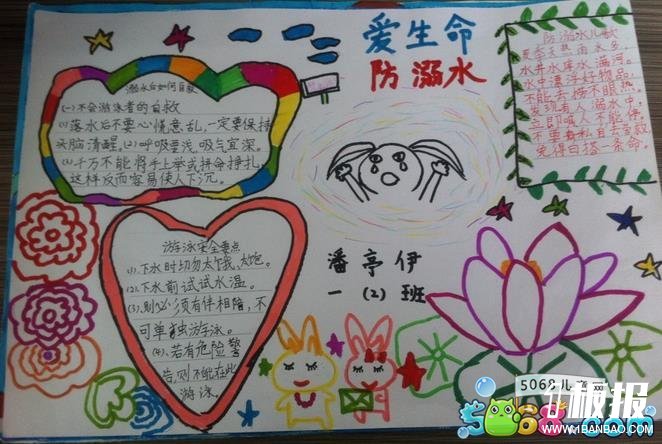 爱生命
防溺水
溺水后如何自救
(一)不会游泳者的自救
(1)落水后不要心慌意乱,一定要保持
头脑清醒。(2)呼吸要浅,吸气宜深。
(3)千万不能将手上举或拼命挣扎,
这样反而容易使人下沉。
防溺水儿歌
夏季天热雨水多,
水井水库水满河。
水中漂浮好物品,
不能去捞不眼热。
发现有人溺水中,
立即喊人不能停。
不要盲目去
免得白搭一条命。
游泳安全要点
(1).下水时切勿太饿、太饱。
(2).下水前试试水温。
(3).别必须有伴相陪,不
可单独游泳。
(4).若有危险警
告,则不能在此
游泳。
潘亭伊
一(2)班
5068儿 网
板报
WWW.1BANBAO.COM